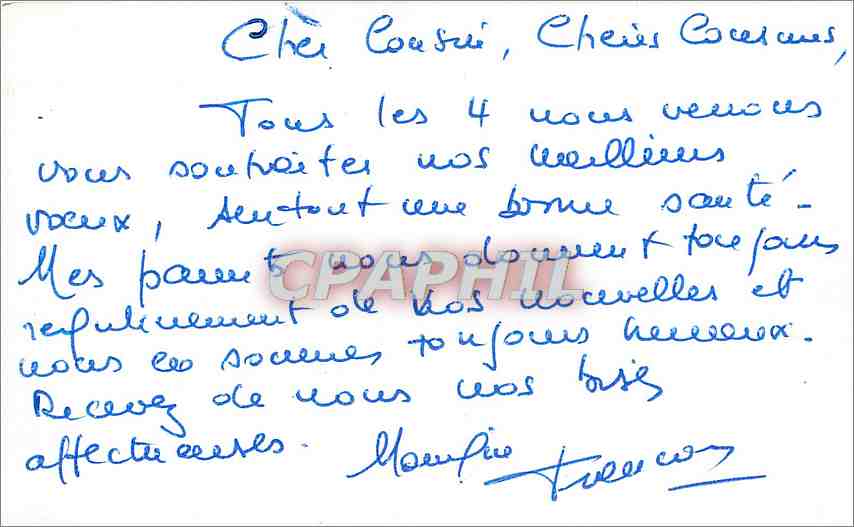 Cher Cousin, Chères Cousines,
Tous les 4 nous venons
vous souhaiter nos meilleurs
voeux, surtout une bonne santé.
Mes parents nous donnent toujours
régulièrement de vos nouvelles et
nous en sommes toujours heureux.
Recevez de nous nos bises
affectueuses.
CPAPHIL